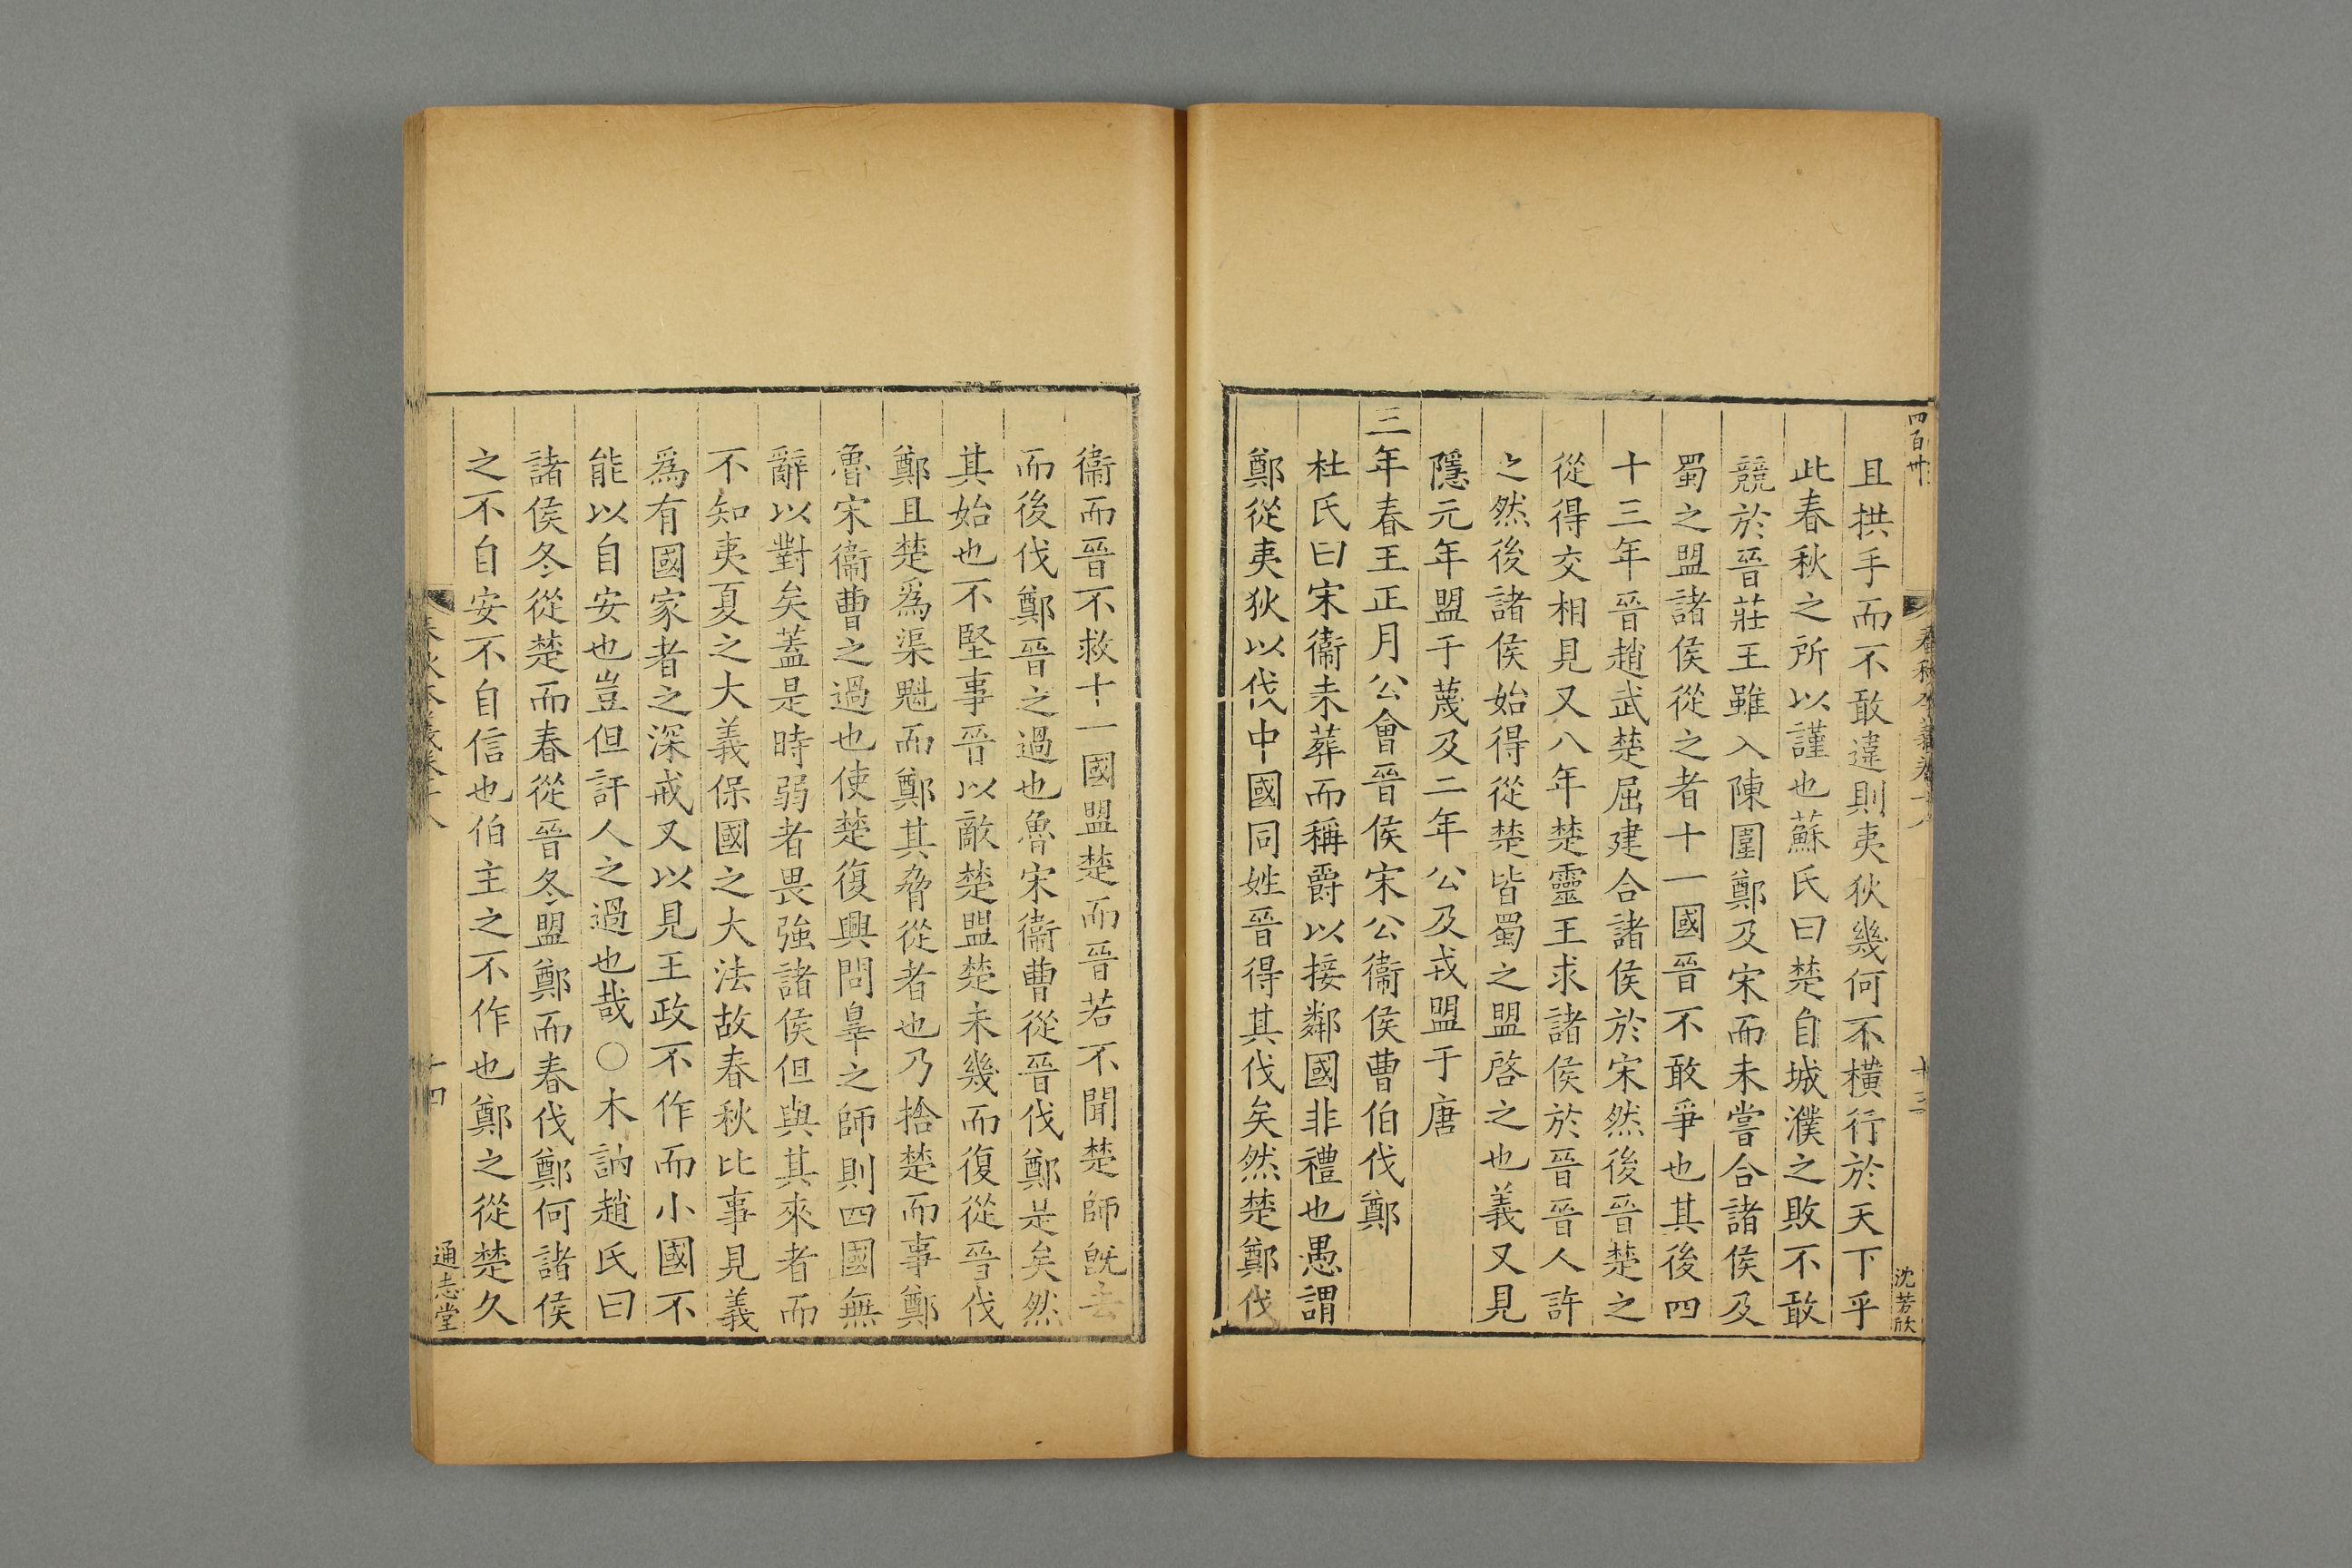 四百卅
春秋本義卷十八
十三
沈芳欣
且拱手而不敢違則夷狄幾何不橫行於天下乎
此春秋之所以謹也蘇氏曰楚自城濮之敗不敢
競於晉莊王雖入陳圍鄭及宋而未嘗合諸侯及
蜀之盟諸侯從之者十一國晉不敢爭也其後四
十三年晉趙武楚屈建合諸侯於宋然後晉楚之
從得交相見又八年楚靈王求諸侯於晉晉人許
之然後諸侯始得從楚皆蜀之盟啓之也義又見
隱元年盟于蔑及二年公及戎盟于唐
三年春王正月公會晉侯宋公衞侯曹伯伐鄭
杜氏曰宋衞未葬而稱爵以接鄰國非禮也愚謂
鄭從夷狄以伐中國同姓晉得其伐矣然楚鄭伐
衞而晉不救十一國盟楚而晉若不聞楚師旣去
而後伐鄭晉之過也魯宋衞曹從晉伐鄭是矣然
其始也不堅事晉以敵楚盟楚未幾而復從晉伐
鄭且楚爲渠魁而鄭其脅從者也乃捨楚而事鄭
魯宋衞曹之過也使楚復興問辠之師則四國無
辭以對矣蓋是時弱者畏強諸侯但與其來者而
不知夷夏之大義保國之大法故春秋比事見義
爲有國家者之深戒又以見王政不作而小國不
能以自安也豈但訐人之過也哉○木訥趙氏曰
諸侯冬從楚而春從晉冬盟鄭而春伐鄭何諸侯
之不自安不自信也伯主之不作也鄭之從楚久
春秋本義卷十八
十四
通志堂